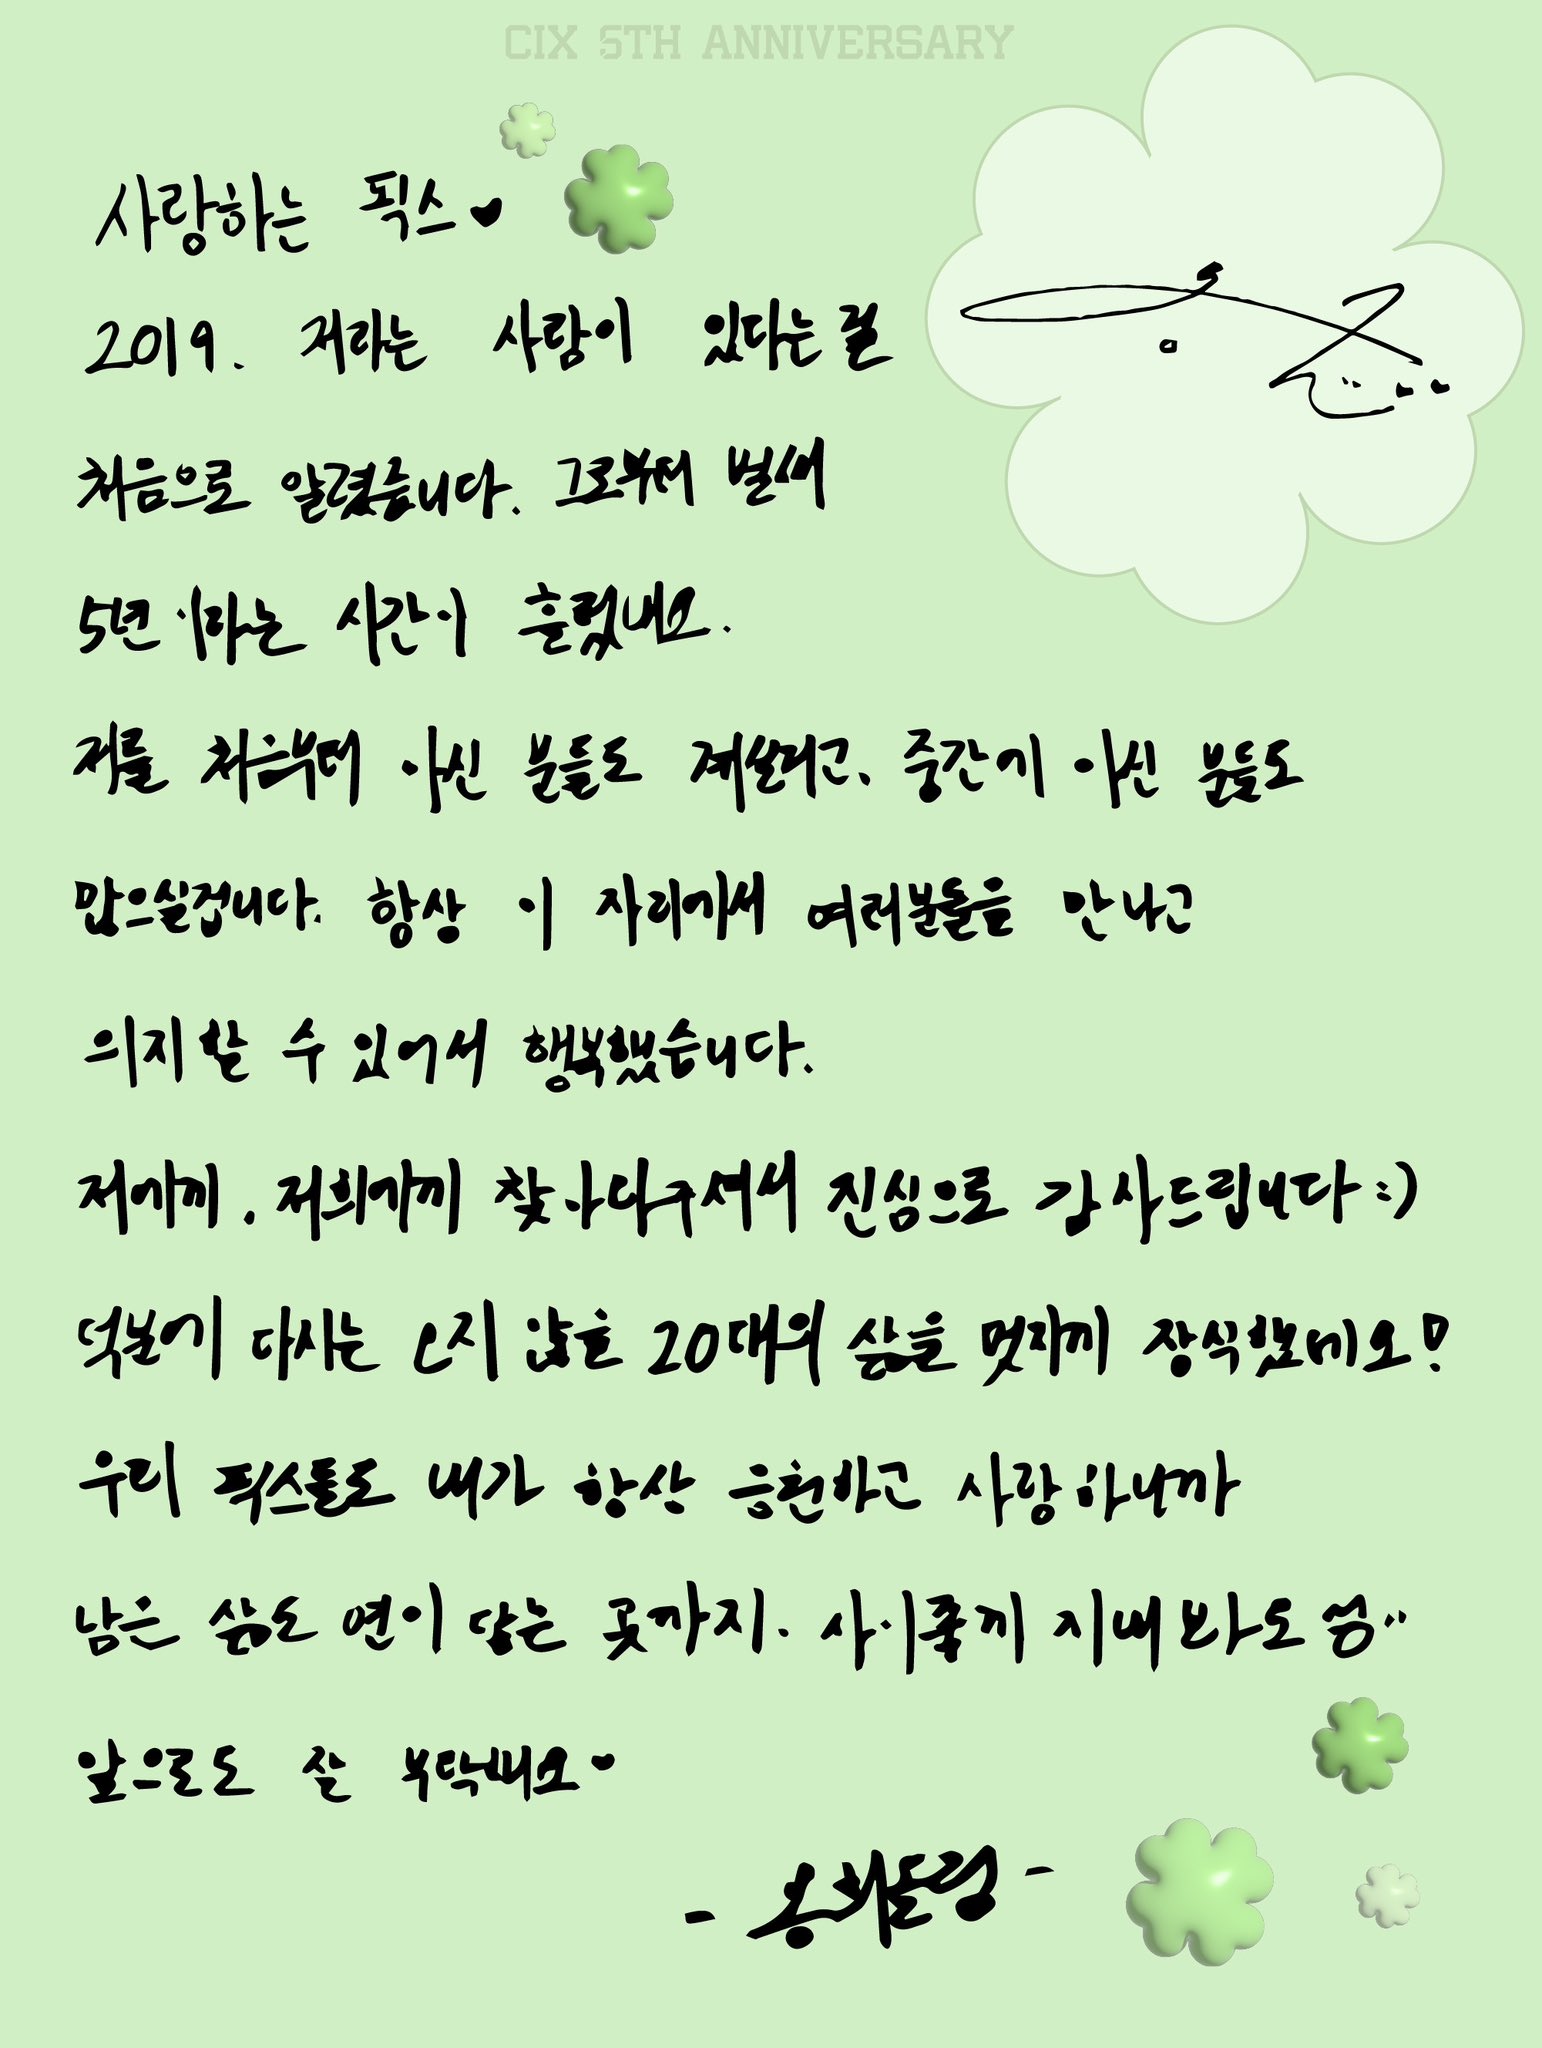 CIX 5TH ANNIVERSARY
사랑하는 픽스♥
2019. 저라는 사람이 있다는 걸
처음으로 알렸습니다. 그로부터 벌써
5년이라는 시간이 흘렀네요.
저를 처음부터 아신 분들도 계실테고, 중간에 아신 분들도
많으실겁니다. 항상 이 자리에서 여러분들을 만나고
의지할 수 있어서 행복했습니다.
저에게, 저희에게 찾아와주셔서 진심으로 감사드립니다 :)
덕분에 다시는 오지 않을 20대의 삶을 멋지게 장식했네요!
우리 픽스들도 내가 항상 응원하고 사랑하니까
남은 삶도 연이 닿는 곳까지. 사이좋게 지내봐도
앞으로도 잘 부탁해요♥
- 용희드림 -